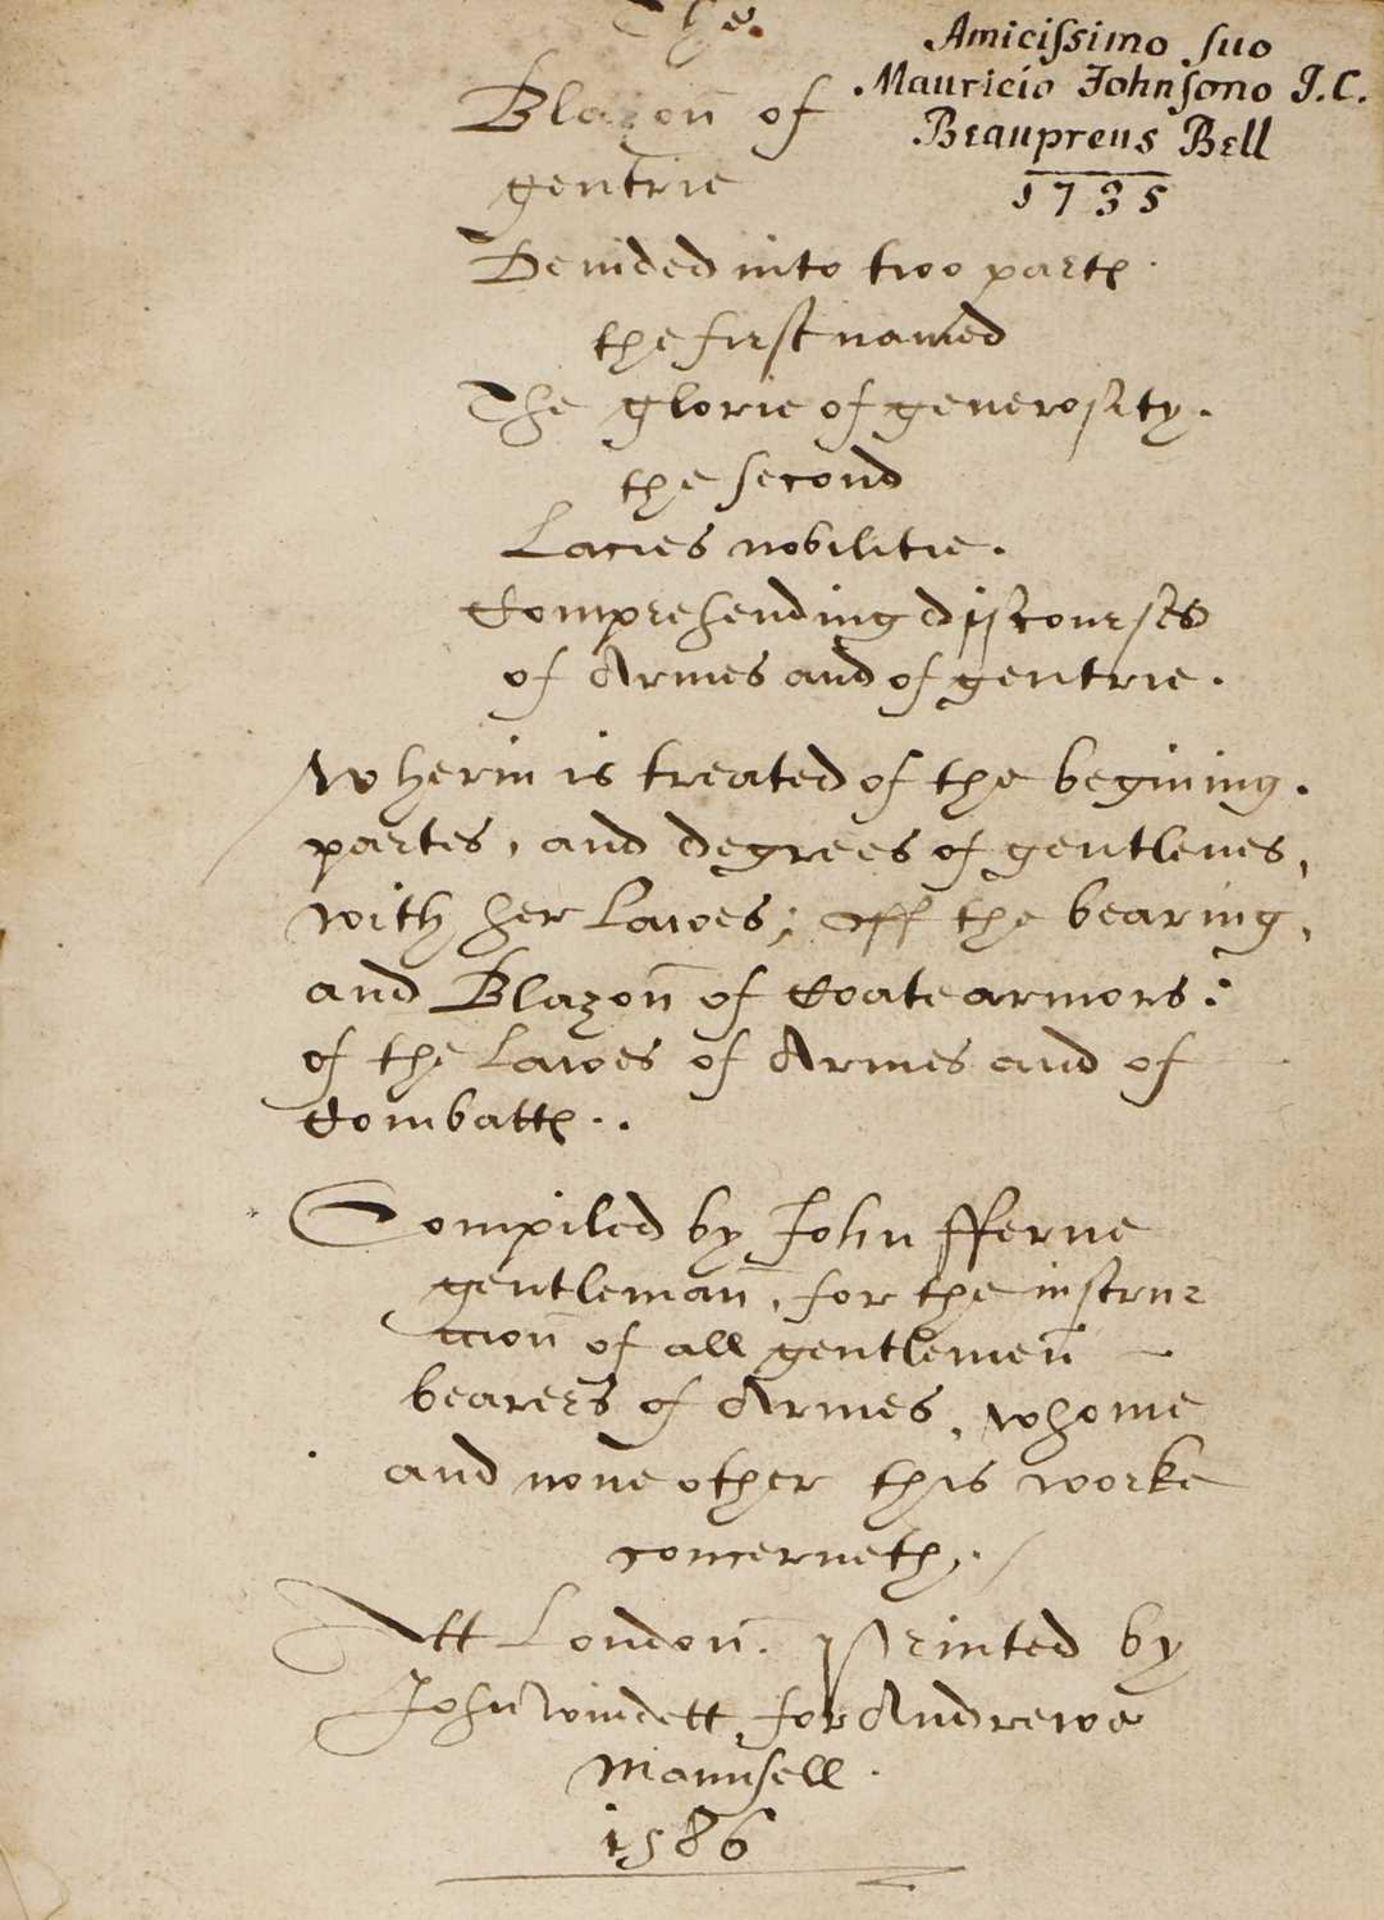 The
Amicissimo suo
Mauricio Johnsono J.C.
Beaupreus Bell
1735
Blazon̄ of
gentrie
Deuided into two partes.
the first named
The glorie of generosity.
the second
Lacies nobilitie.
Comprehending discourses
of Armes and of gentrie.
Wherin is treated of the begining.
partes, and degrees of gentlenes,
with her lawes; off the bearing,
and Blazon̄ of Coate armors:
of the lawes of Armes and of
Combattes..
Compiled by John fferne
gentleman̄, for the instruc
tion̄ of all gentlemen̄
bearers of Armes, whome
and none other this worke
concerneth.
Att London̄. Printed by
John Windett, for Andrewe
Maunsell.
1586